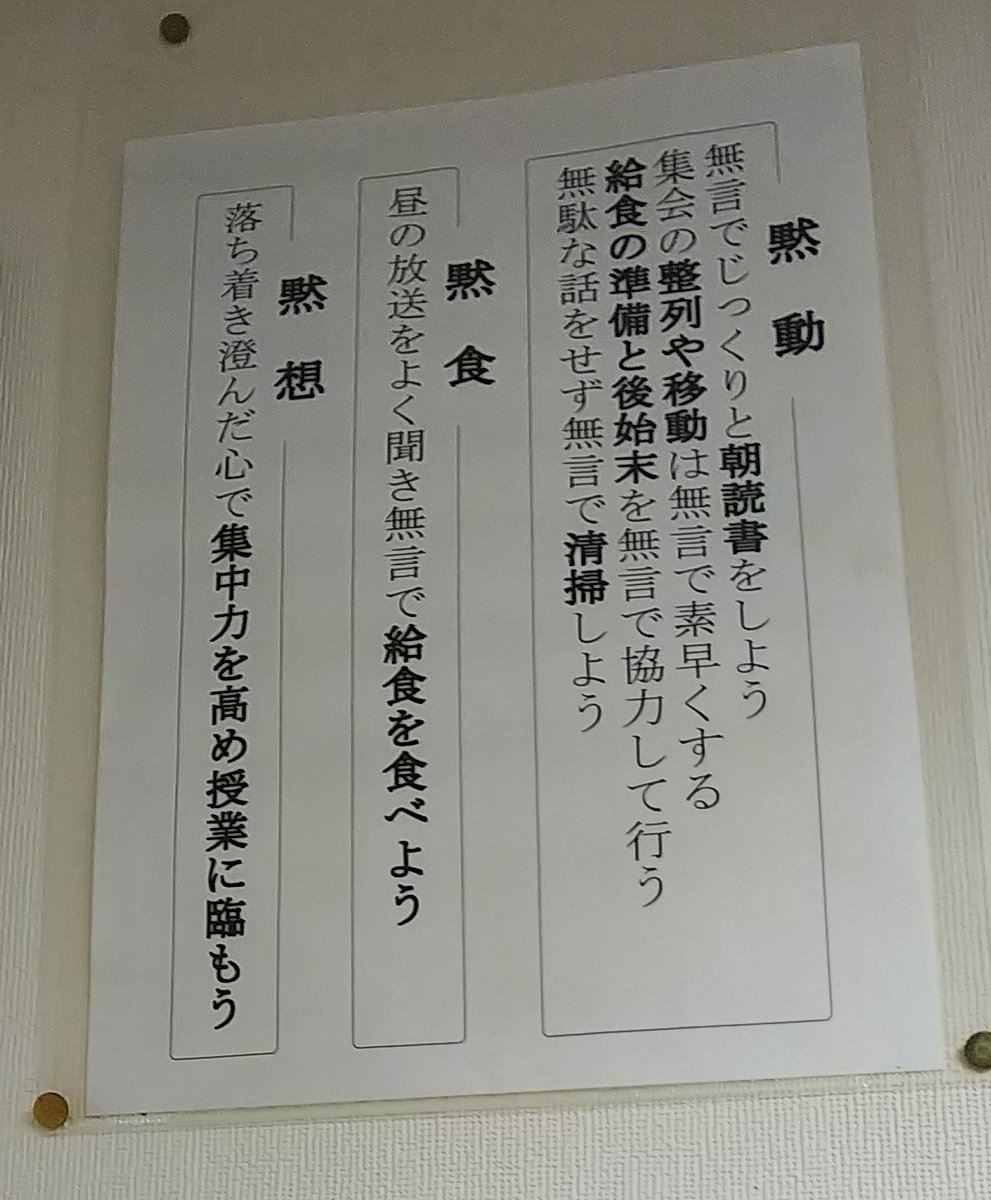 黙動
無言でじっくりと朝読書をしよう
集会の整列や移動は無言で素早くする
給食の準備と後始末を無言で協力して行う
無駄な話をせず無言で清掃しよう
黙食
昼の放送をよく聞き無言で給食を食べよう
黙想
落ち着き澄んだ心で集中力を高め授業に臨もう